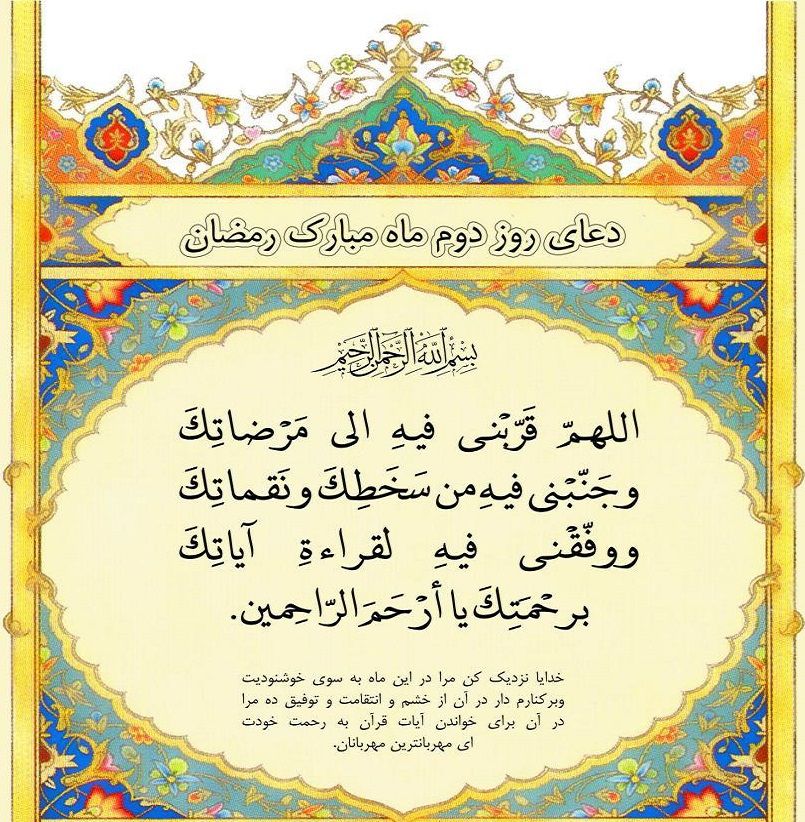 دعای روز دوم ماه مبارک رمضان
بِسْمِ اللَّهِ الرَّحْمَنِ الرَّحِيمِ
اللهمّ قَرّبْنی فیهِ الی مَرْضاتِكَ
وجَنّبْنی فیهِ من سَخَطِكَ ونَقماتِكَ
ووفّقْنی فیهِ لقراءةِ آیاتِكَ
برحْمَتِكَ یا أرْحَمَ الرّاحِمین.
خدایا نزدیک کن مرا در این ماه به سوی خوشنودیت
وبرکنارم دار در آن از خشم و انتقامت و توفیق ده مرا
در آن برای خواندن آیات قرآن به رحمت خودت
ای مهربانترین مهربانان.